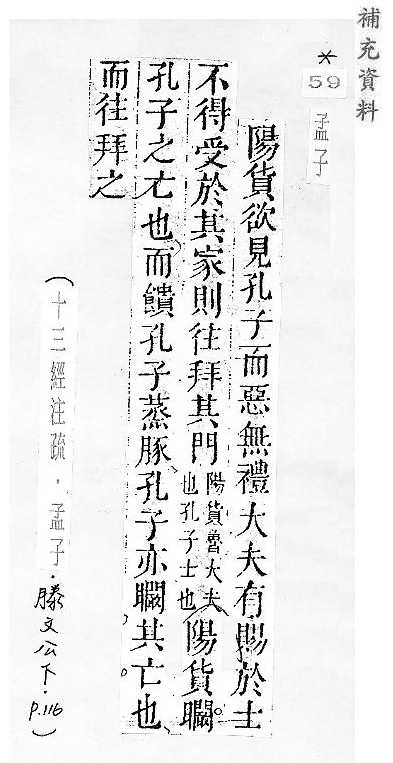 補充資料
*
59
孟子
陽貨欲見孔子而惡無禮大夫有賜於士
不得受於其家則往拜其門陽貨魯大夫也孔子士也陽貨矙
孔子之亡也而饋孔子蒸豚孔子亦矙其亡也
而往拜之
(十三經注疏.孟子.滕文公下.P.116)